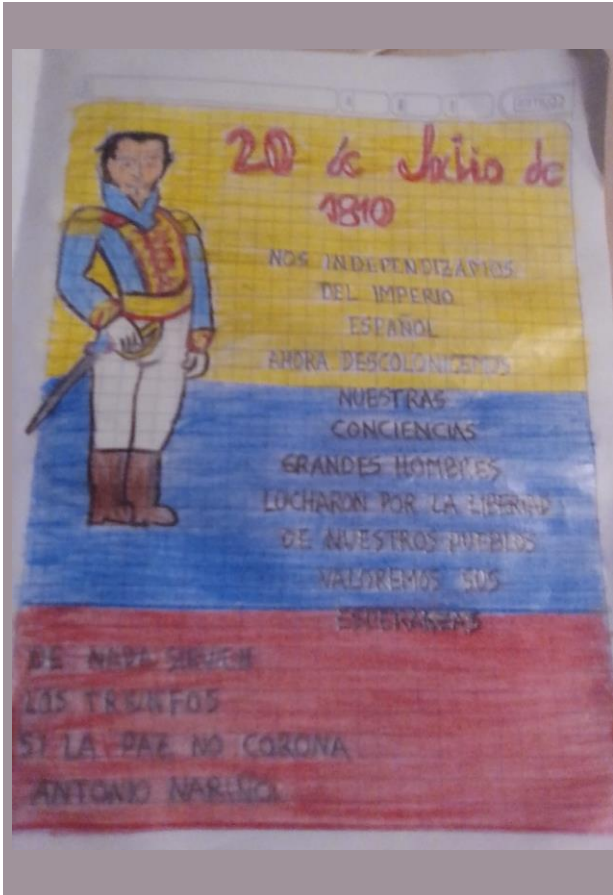 20 de Julio de
1810
NOS INDEPENDIZAMOS
DEL IMPERIO
ESPAÑOL
AHORA DESCOLONICEMOS
NUESTRAS
CONCIENCIAS
GRANDES HOMBRES
LUCHARON POR LA LIBERTAD
DE NUESTROS PUEBLOS
VALOREMOS SUS
ESPERANZAS
DE NADA SIRVEN
LOS TRIUNFOS
SI LA PAZ NO CORONA
ANTONIO NARIÑO